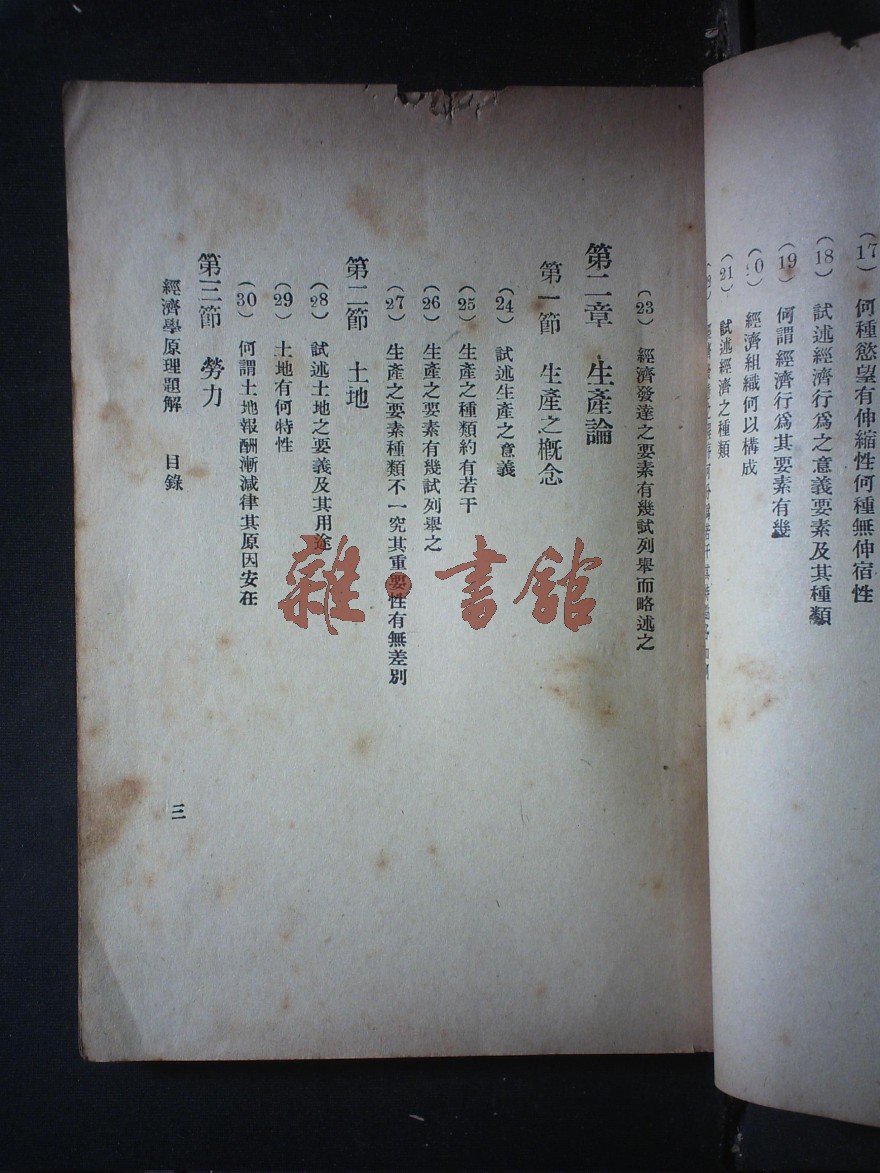 (17) 何種慾望有伸縮性何種無伸宿性
(18) 試述經濟行爲之意義要素及其種類
(19) 何謂經濟行爲其要素有幾
(20) 經濟組織何以構成
(21) 試述經濟之種類
(23) 經濟發達之要素有幾試列舉而略述之
第二章 生產論
第一節 生產之概念
(24) 試述生產之意義
(25) 生產之種類約有若干
(26) 生產之要素有幾試列舉之
(27) 生產之要素種類不一究其重要性有無差別
第二節 土地
(28) 試述土地之要義及其用途
(29) 土地有何特性
(30) 何謂土地報酬漸減律其原因安在
第三節 勞力
經濟學原理題解 目錄
三
雜·書館